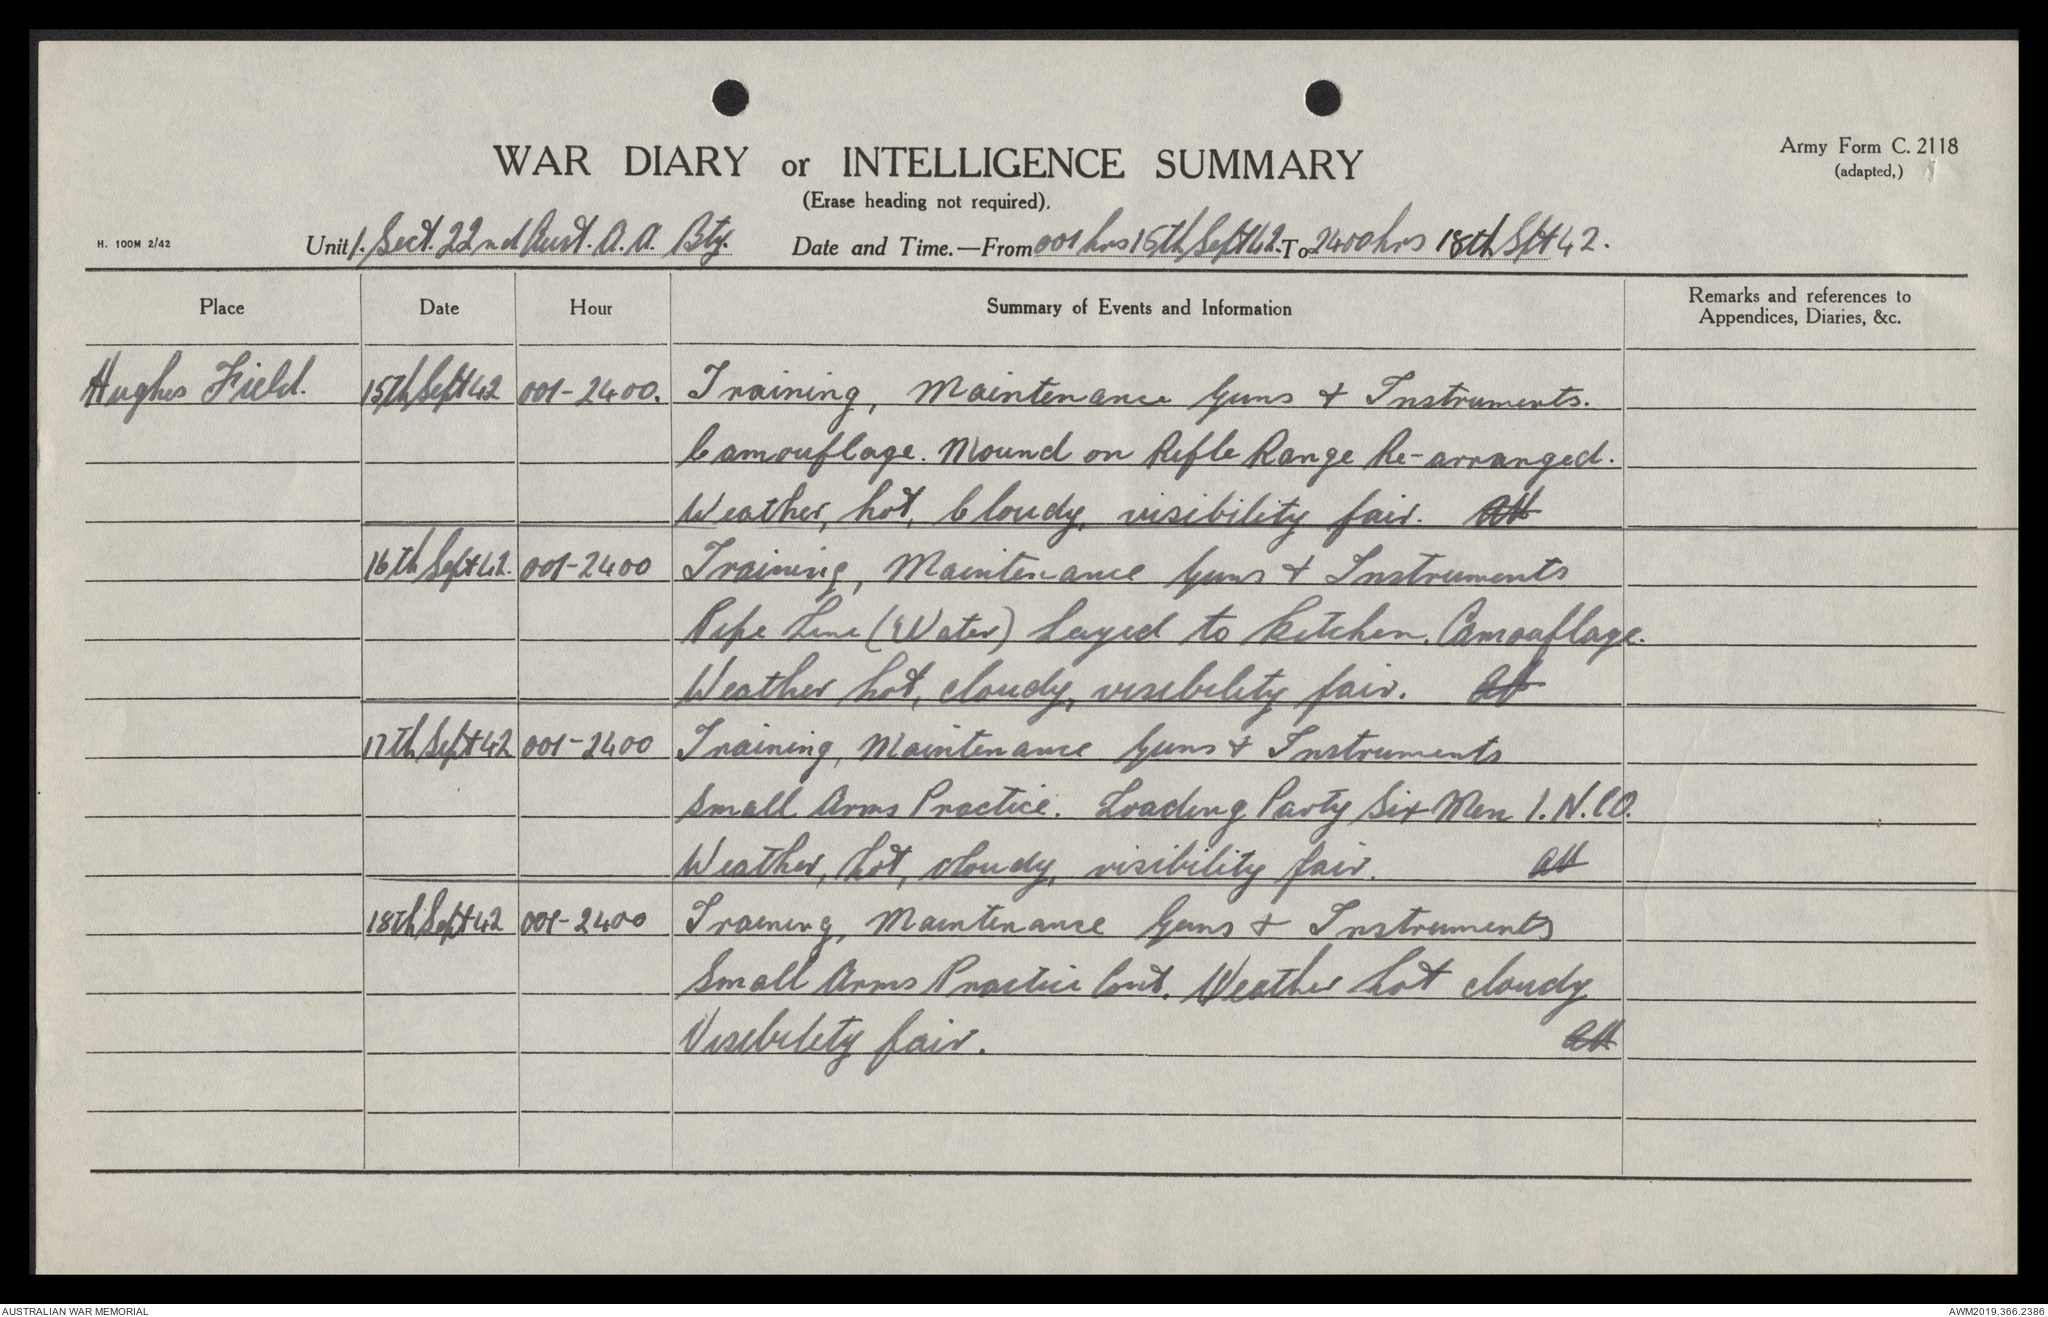 WAR DIARY or INTELLIGENCE SUMMARY
Army Form C. 2118
(adapted,)
(Erase heading not required).
H. 100M 2/42
Unit 1. Sect. 22nd Aust. A.A. Bty. Date and Time.—From 001 hrs 15th Sept 42. To 2400 hrs 18th Spt 42.
Place Date Hour Summary of Events and Information Remarks and references to
Appendices, Diaries, &c.
Hughes Field. 15th Sept 42 001-2400. Training, Maintenance Guns & Instruments.
Camouflage. Mound on Rifle Range Re-arranged.
Weather, hot, Cloudy, visibility fair.
16th Sept 42. 001-2400 Training, Maintenance Guns & Instruments
Pipe Line (Water) Layed to Kitchen. Camouflage.
Weather hot, cloudy, visibility fair.
17th Sept 42 001-2400 Training, Maintenance Guns & Instruments
Small Arms Practice. Loading Party Six Men 1. N.CO.
Weather, hot, cloudy, visibility fair.
18th Sept 42 001-2400 Training, Maintenance Guns & Instruments
Small Arms Practice Cont. Weather hot cloudy
Visibility fair.
AUSTRALIAN WAR MEMORIAL
AWM2019.366.2386